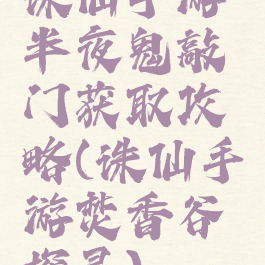 诛仙手游
半夜鬼敲
门获取攻
略(诛仙手
游焚香谷
探灵)